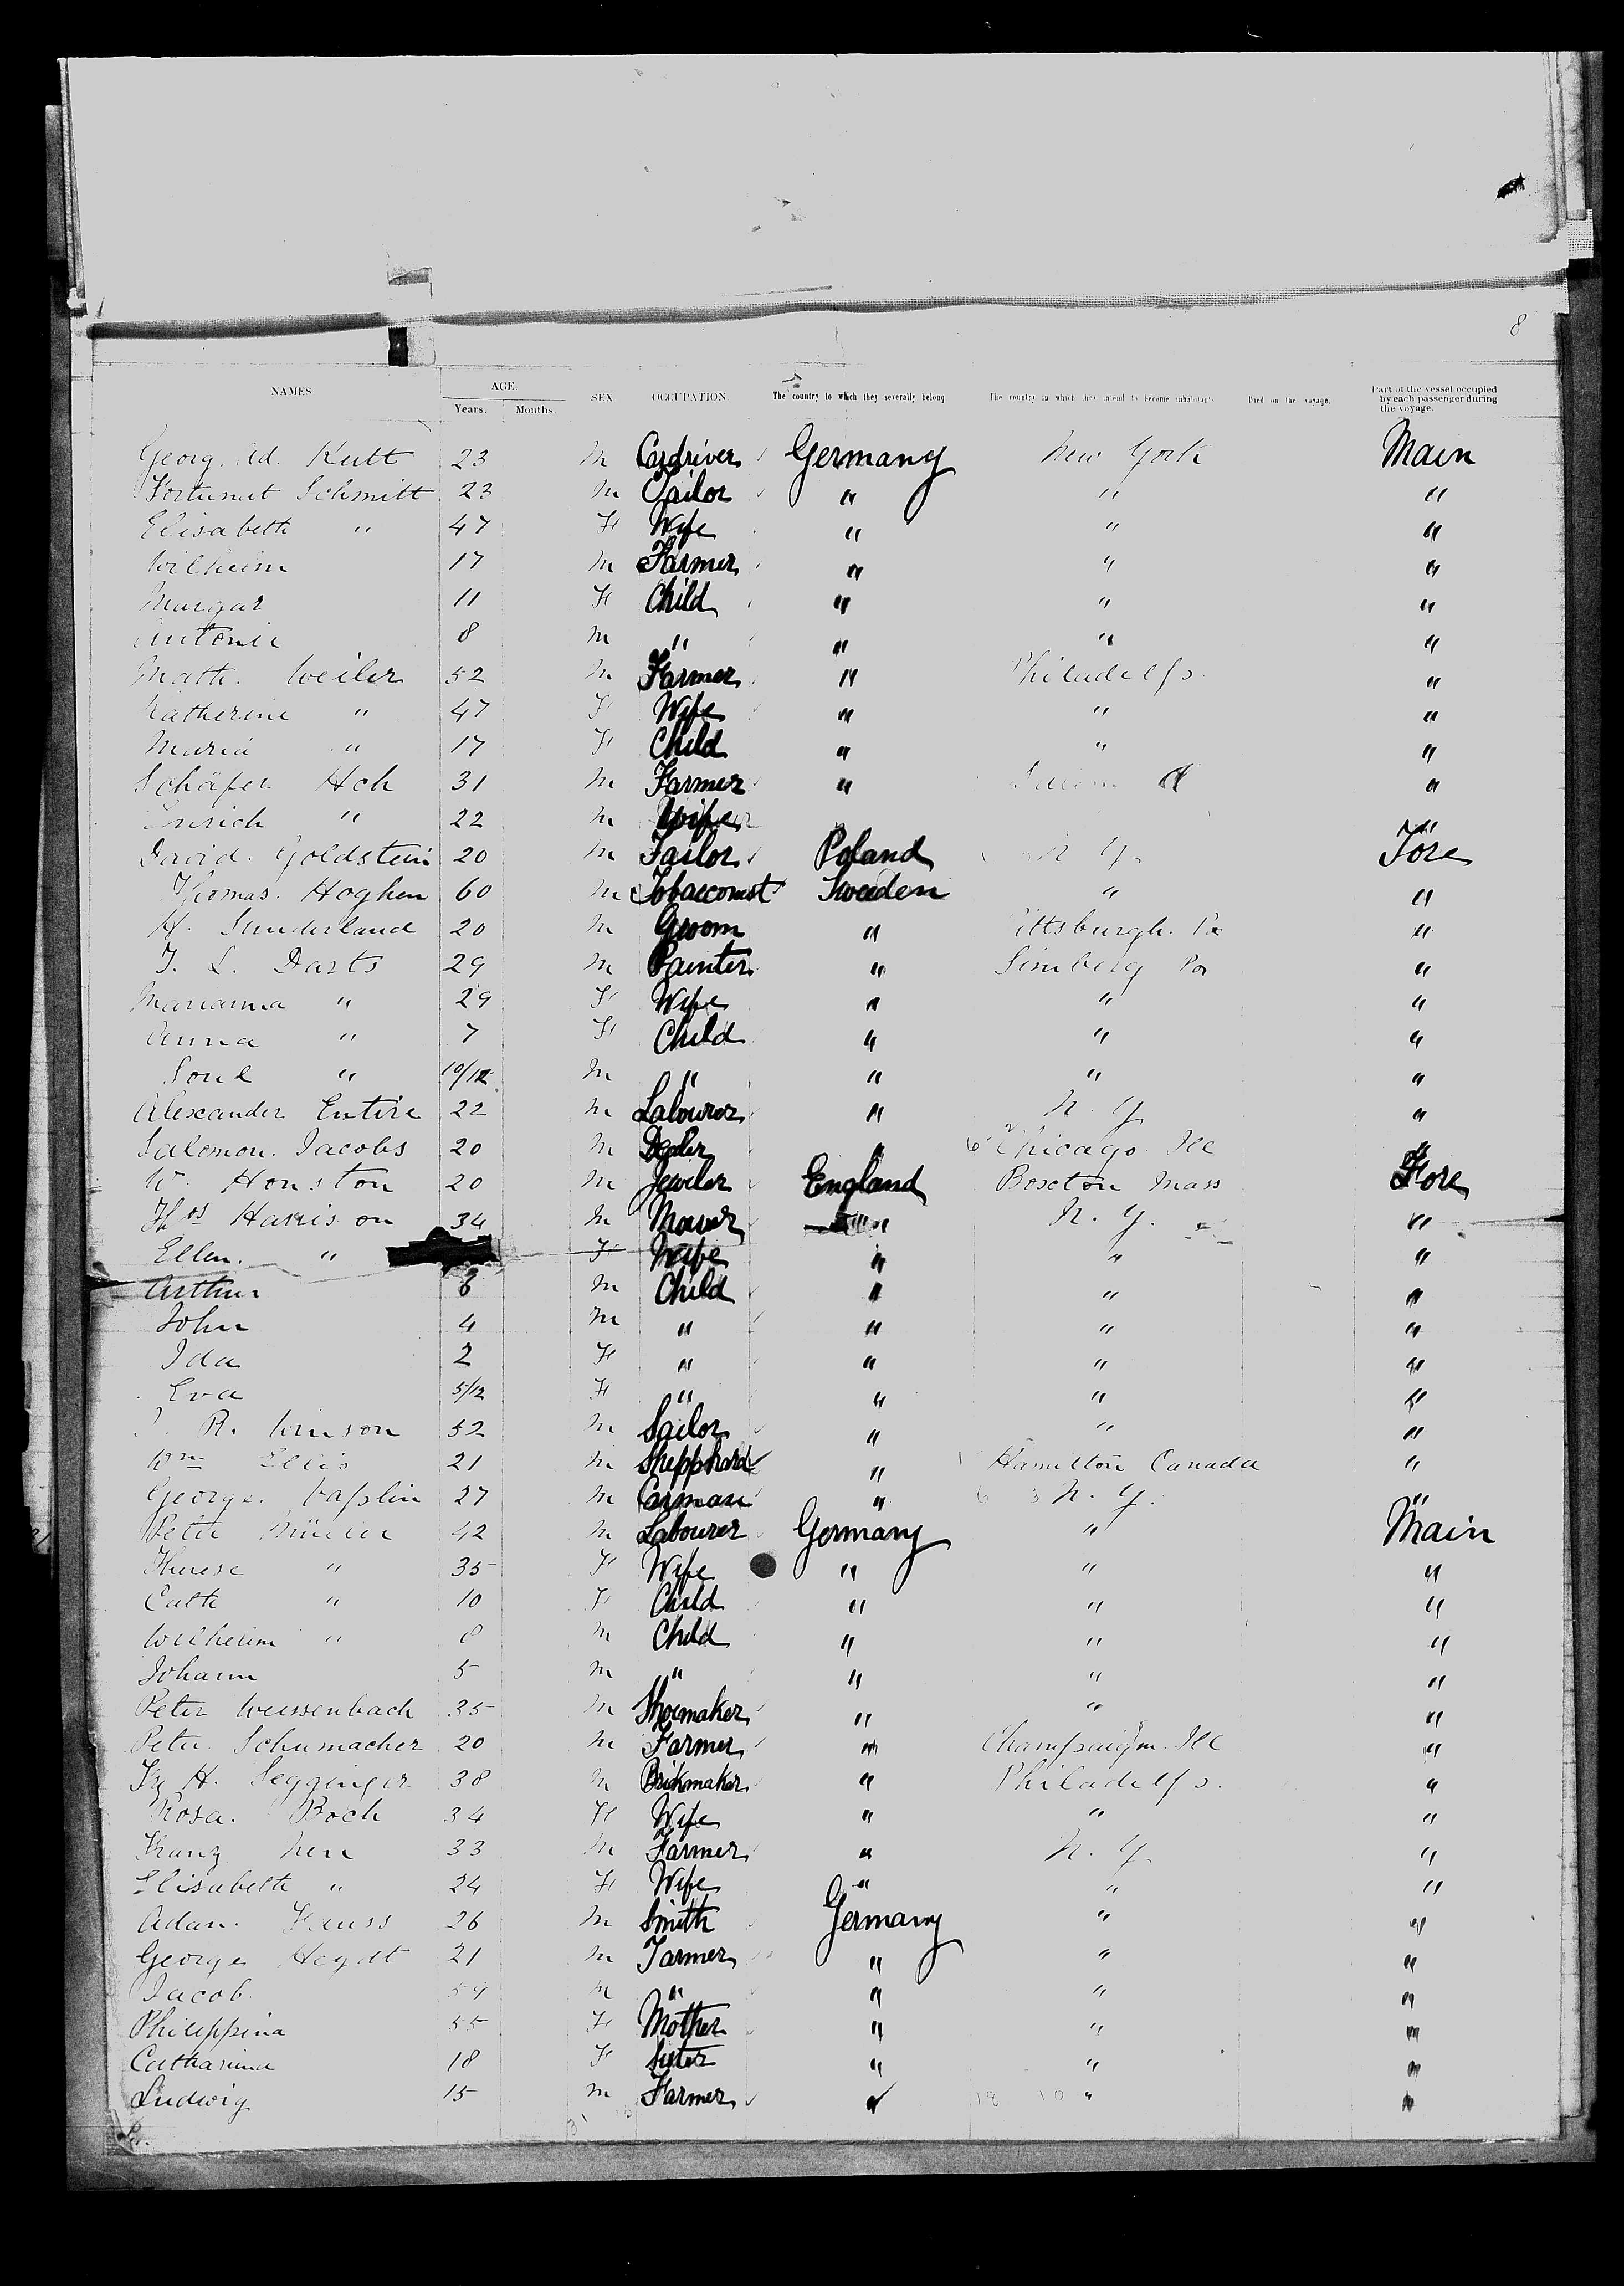 8
NAMES AGE. SEX OCCUPATION. The country to which they severally belong The country in which they intend to become inhabitants Died on the voyage. Part of the vessel occupied by each passenger during the voyage.
Years. Months.
Georg. Ad. Kutt 23 M Cardriver Germany New York Main
Fortunat Schmitt 23 M Tailor " " "
Elisabeth " 47 F Wife " " "
Wilhelm 17 M Farmer " " "
Margar 11 F Child " " "
Antonie 8 M " " " "
Math. Weiler 52 M Farmer " Philadelfs. "
Katherine " 47 F Wife " " "
Maria " 17 F Child " " "
Schäfer Hch 31 M Farmer " "
" 22 M Wife
David. Goldstein 20 M Tailor Poland N. Y. Fore
Thomas. Hoghen 60 M Tobacconist Sweeden " "
H. Sunderland 20 M Groom " Pittsburgh. Pa "
T. L. Darts 29 M Painter " Simberg Pa "
Marianna " 29 F Wife " " "
Anna " 7 F Child " " "
" 10/12 M " " " "
Alexander Entire 22 M Labourer " N. Y. "
Salomon. Jacobs 20 M Dealer " Chicago Ill "
W. Houston 20 M Jeweler England Boxton Mass Fore
Thos Harrison 34 M " N. Y. "
Ellen. " F Wife " " "
Arthur M Child " " "
John 4 M " " " "
Ida 2 F " " " "
Eva 5/12 F " " " "
R. Vinson 52 M Sailor " " "
Wm Ellis 21 M Shepphard " Hamilton Canada "
George. 27 M Carman " N. Y. "
Peter Müller 42 M Labourer Germany " Main
Therese " 35 F Wife " " "
Cath " 10 F Child " " "
Wilhelm " 8 M Child " " "
Johann 5 M " " " "
Peter Weissenbach 35 M Shoemaker " " "
Peter Schumacher 20 M Farmer " Champaign Ill "
H. Segginger 38 M Brickmaker " Philadelfs. "
Rosa. Boch 34 F Wife " " "
Franz 33 M Farmer " N. Y. "
Elisabeth " 24 F Wife " " "
Adam. 26 M Smith Germany " "
George Heydt 21 M Farmer " " "
Jacob 59 M " " " "
Philippina 55 F Mother " " "
Catharina 18 F Sister " " "
Ludwig 15 M Farmer " " "